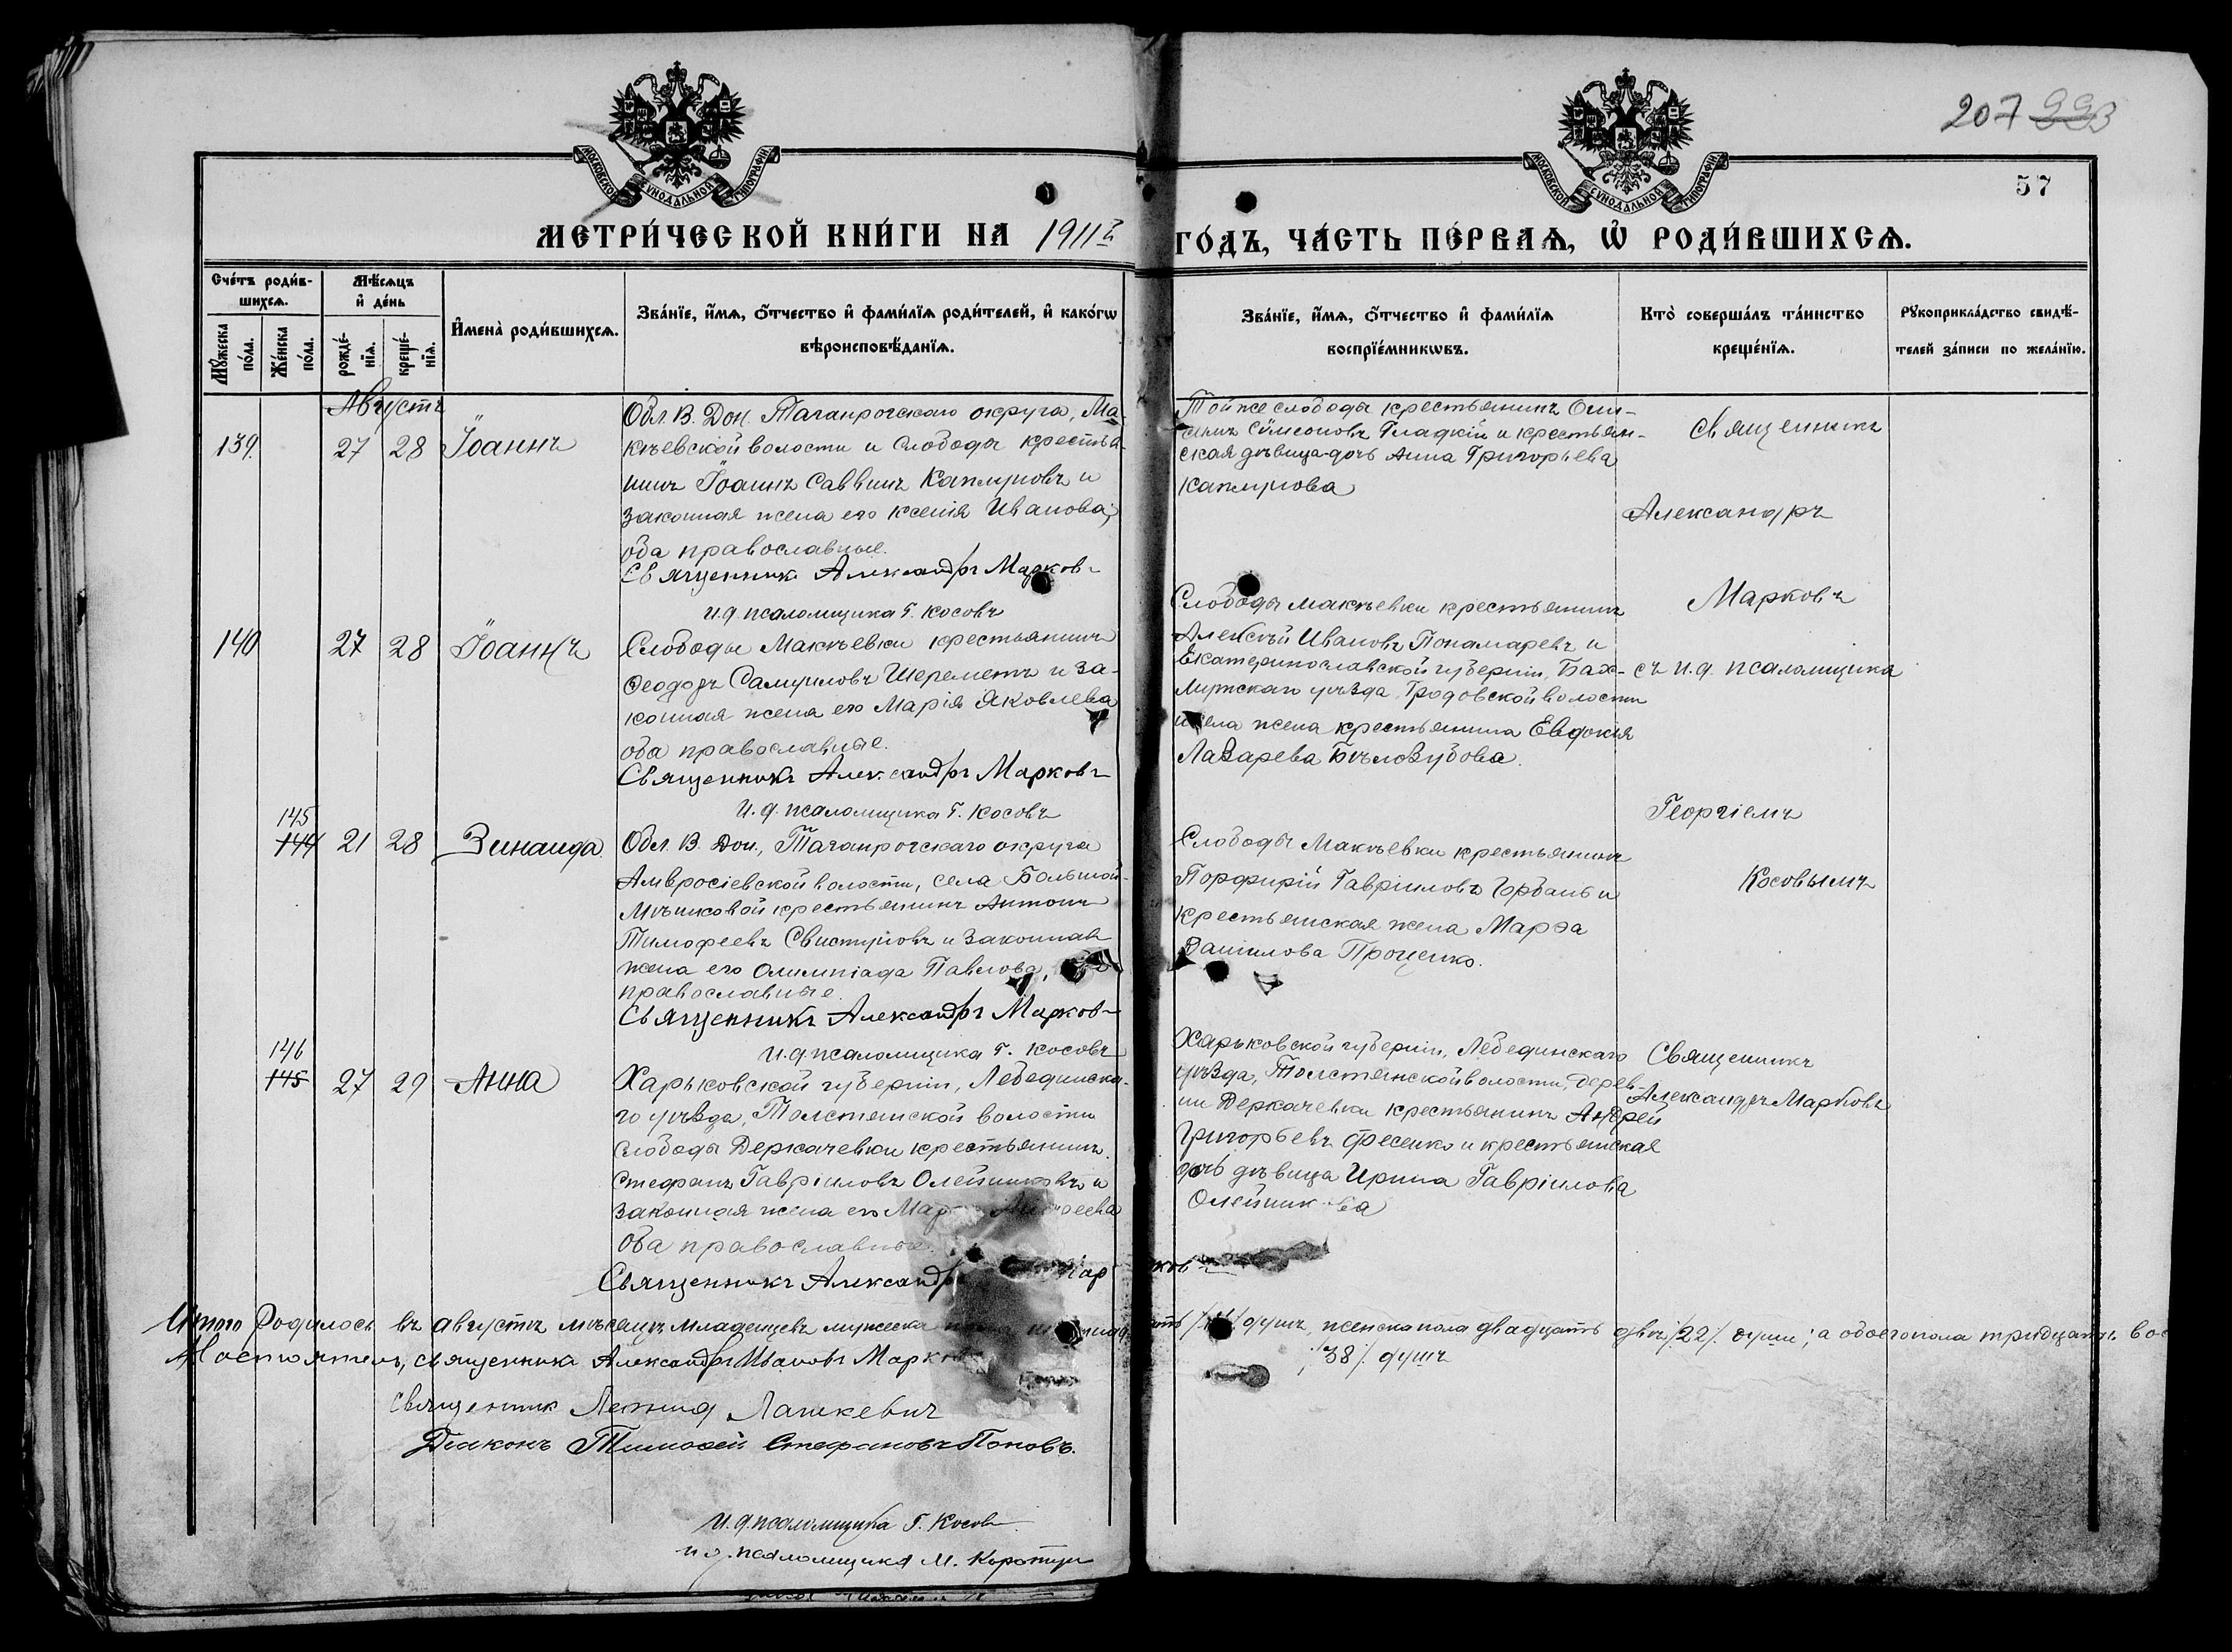 207 993
57
МОСКОВСКОЙ СѴНОДАЛЬНОЙ ТИПОГРАФІИ
МОСКОВСКОЙ СѴНОДАЛЬНОЙ ТИПОГРАФІИ
МЕТРИ́ЧЕСКОЙ КНИ́ГИ НА 1911й
ГО́ДЪ, ЧА́СТЬ ПЕ́РВАѦ, Ѡ҆ РОДИ́ВШИХСѦ.
Сче́тъ роди́в-
шихсѧ.
Мꙋ́жеска по́ла.
Же́нска по́ла.
Мѣ́сѧцъ
и҆ де́нь
рожде́-нїѧ.
креще́-нїѧ.
И҆мена̀ роди́вшихсѧ.
Зва́нїе, и҆́мѧ, ѻ҆́тчество и҆ фами́лїѧ роди́телей, и҆ како́гѡ
вѣроисповѣ́данїѧ.
Зва́нїе, и҆́мѧ, ѻ҆́тчество и҆ фами́лїѧ
воспрїе́мникѡвъ.
Кто̀ соверша́лъ та́инство
креще́нїѧ.
Рꙋкоприкла́дство свидѣ́-
телей за́писи по жела́нїю.
Августъ
139. 27 28 Іоаннъ
Обл. В. Дон. Таганрогскаго округа, Ма-
кѣевской волости и слободы крестья-
нинъ Іоаннъ Саввинъ Каплуновъ и
законная жена его Ксенія Иванова,
оба православные.
Священникъ Александръ Марковъ
И.д. псаломщика Г. Косовъ
Той же слободы крестьянинъ
Сѵмеоновъ Гладкій и крестьян-
ская дѣвица-дочь Анна Григорьева
Каплунова
Священникъ
Александръ
Марковъ
съ и.д. псаломщика
Георгіемъ
Косовымъ
140 27 28 Іоаннъ
Слободы Макѣевки крестьянинъ
Ѳеодоръ Самуиловъ Шереметъ и за-
конная жена его Марія Яковлева
оба православные.
Священникъ Александръ Марковъ
И.д. псаломщика Г. Косовъ
Слободы Макѣевки крестьянинъ
Алексѣй Ивановъ Понамаревъ и
Екатеринославской губерніи, Бах-
мутскаго уѣзда, Гродовской волости
и села жена крестьянина Евдокія
Лазарева Бѣлозубова.
145
144 21 28 Зинаида
Обл. В. Дон., Таганрогскаго округа
Амвросіевской волости, села Большой-
Мѣшковой крестьянинъ Антонъ
Тимофеевъ Свистуновъ и законная
жена его Олимпіада Павлова,
православные.
Священникъ Александръ Марковъ
И.д. псаломщика Г. Косовъ
Слободы Макѣевки крестьянинъ
Порфирій Гавріиловъ Горбань и
крестьянская жена Марѳа
Данилова Проценко.
146
145 27 29 Анна
Харьковской губерніи, Лебединска-
го уѣзда, Толстянской волости
слободы Деркачевки крестьянинъ
Стефанъ Гавріиловъ Олейниковъ и
законная жена его
оба православные.
Священникъ Александръ Марковъ
Харьковской губерніи, Лебединскаго
уѣзда, Толстянской волости, дерев-
ни Деркачевки крестьянинъ Андрей
Григорьевъ Фесенко и крестьянская
дочь дѣвица Ирина Гавріилова
Олейникова
Священникъ
Александръ Марковъ
Итого родилось въ августѣ мѣсяцѣ младенцевъ мужеска душъ, женска пола двадцать двѣ /22/ души; а обоего пола тридцать вос
/38/ душъ
Настоятель, священникъ Александръ Ивановъ Марковъ
Священник Леонид Лашкевич
Діаконъ Тимоѳей Стефановъ Поповъ.
И.д. псаломщика Г. Косовъ
и д. псаломщика М.